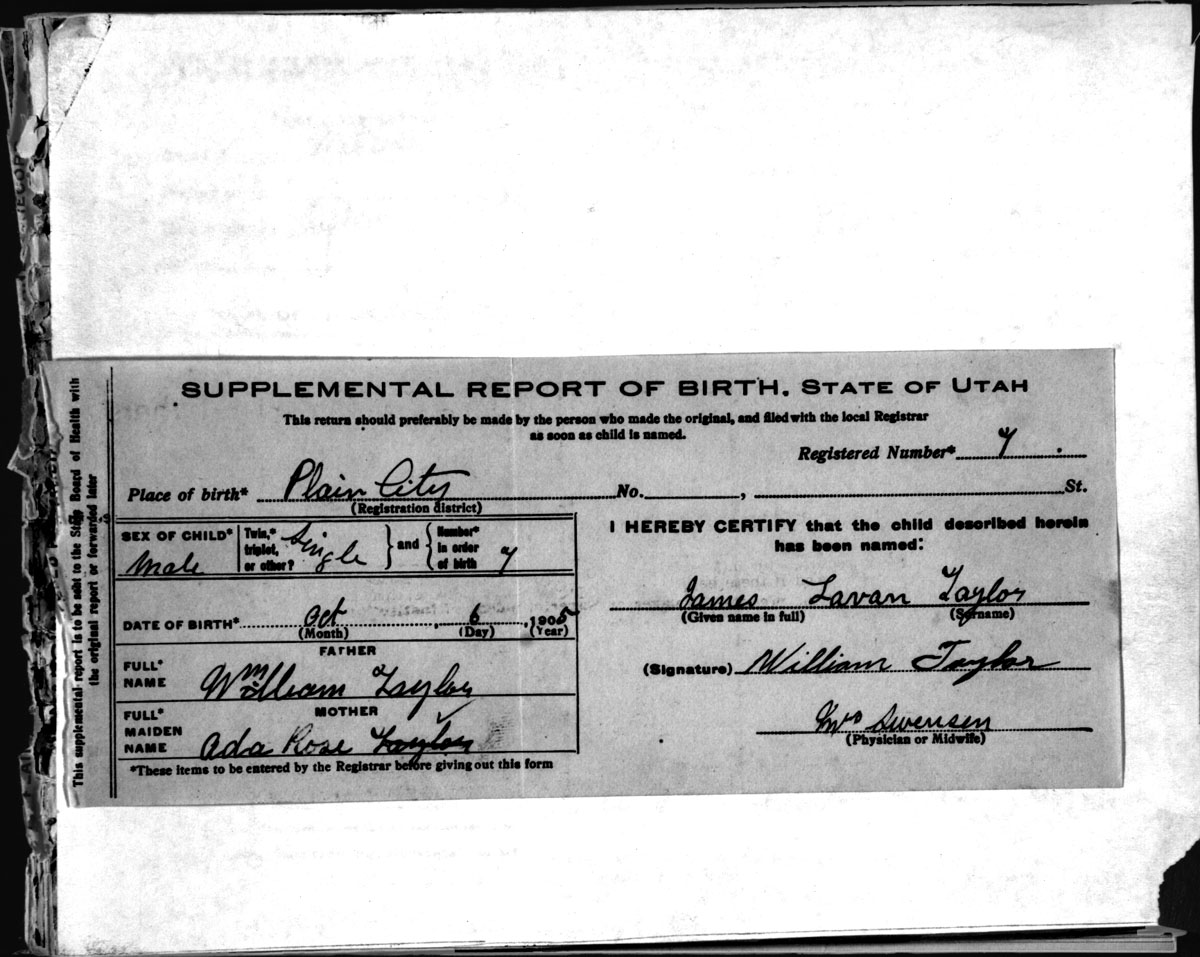 SUPPLEMENTAL REPORT OF BIRTH. STATE OF UTAH
This return should preferably be made by the person who made the original, and filed with the local Registrar
as soon as child is named.
Registered Number* 7
Place of birth* Plain City No. , St.
(Registration district)
SEX OF CHILD* Male
Twin,* triplet, or other? Single and Number* in order of birth 7
DATE OF BIRTH* Oct 6, 1905
(Month) (Day) (Year)
FATHER
FULL* NAME William Taylor
MOTHER
FULL* MAIDEN NAME Ada Rose Taylor
*These items to be entered by the Registrar before giving out this form
I HEREBY CERTIFY that the child described herein
has been named:
James Lavan Taylor
(Given name in full) (Surname)
(Signature) William Taylor
Mrs Swensen
(Physician or Midwife)
This supplemental report is to be sent to the State Board of Health with
the original report or forwarded later